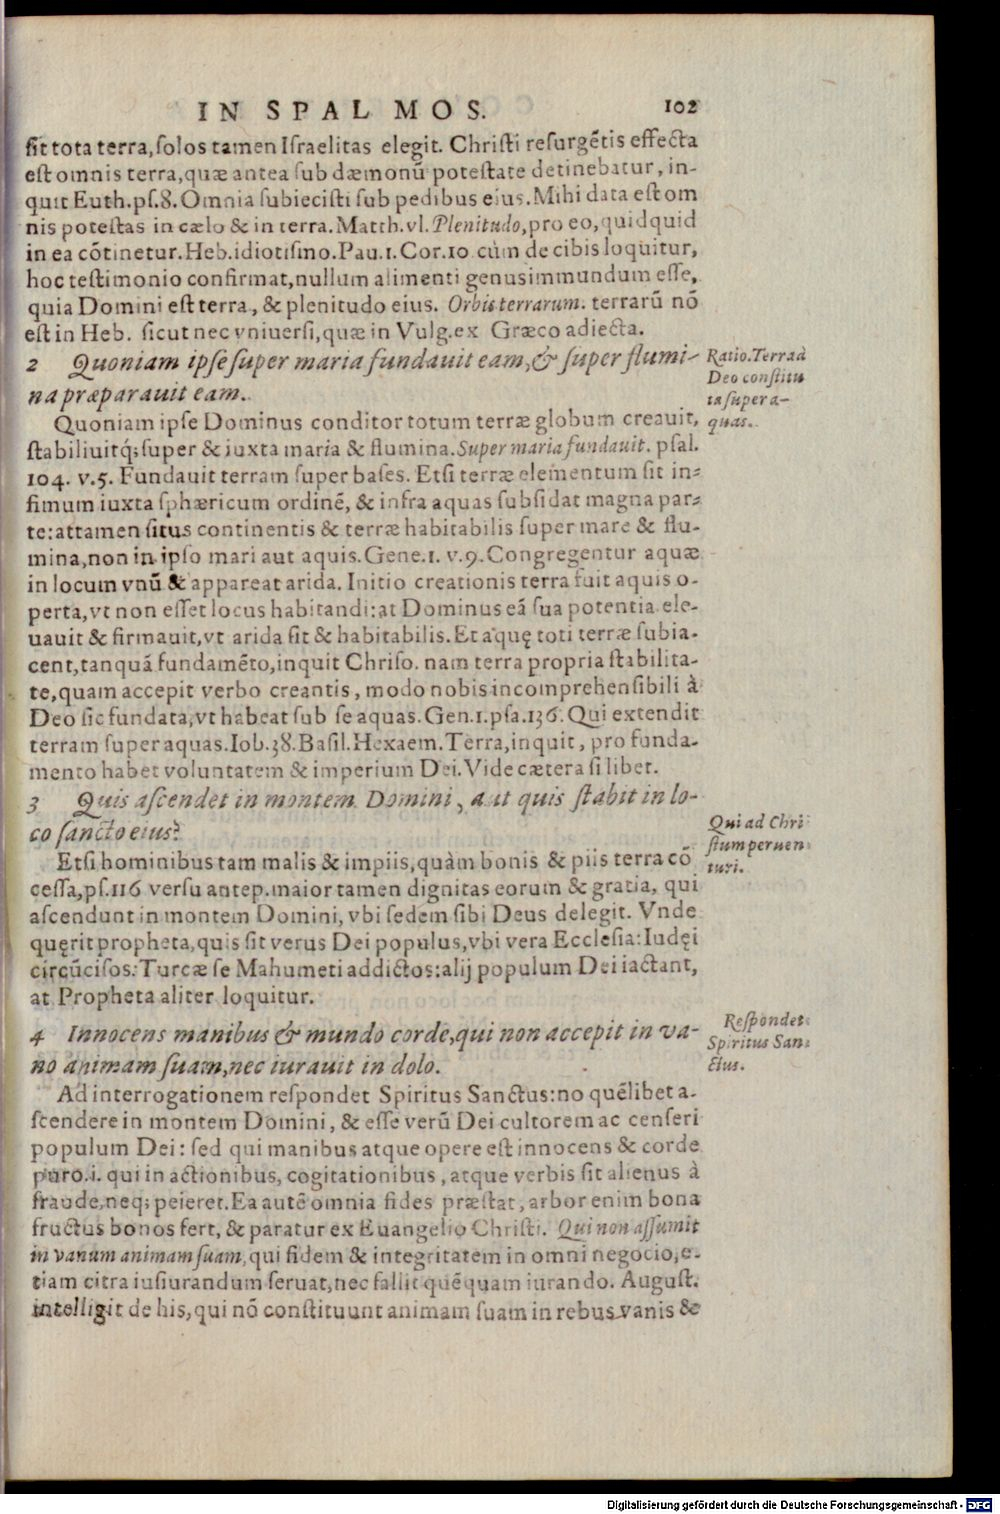 IN SPALMOS. 102
ſit tota terra, ſolos tamen Iſraelitas elegit. Chriſti reſurgẽtis effecta
eſt omnis terra, quæ antea ſub dæmonũ poteſtate detinebatur, in-
quit Euth. pſ. 8. Omnia ſubieciſti ſub pedibus eius. Mihi data eſt om
nis poteſtas in cælo & in terra. Matth. vl. Plenitudo, pro eo, quidquid
in ea cõtinetur. Heb. idiotiſmo. Pau. 1. Cor. 10 cùm de cibis loquitur,
hoc teſtimonio confirmat, nullum alimenti genus immundum eſſe,
quia Domini eſt terra, & plenitudo eius. Orbis terrarum. terrarũ nõ
eſt in Heb. ſicut nec vniuerſi, quæ in Vulg. ex Græco adiecta.
2 Quoniam ipſe ſuper maria fundauit eam, & ſuper flumi-
na præparauit eam.
Ratio. Terra à
Deo conſtitu
ta ſuper a-
quas.
Quoniam ipſe Dominus conditor totum terræ globum creauit,
ſtabiliuitq́; ſuper & iuxta maria & flumina. Super maria fundauit. pſal.
104. v. 5. Fundauit terram ſuper baſes. Etſi terræ elementum ſit in-
fimum iuxta ſphæricum ordinẽ, & infra aquas ſubſidat magna par-
te: attamen ſitus continentis & terræ habitabilis ſuper mare & flu-
mina, non in ipſo mari aut aquis. Gene. 1. v. 9. Congregentur aquæ
in locum vnũ & appareat arida. Initio creationis terra fuit aquis o-
perta, vt non eſſet locus habitandi: at Dominus eã ſua potentia ele-
uauit & firmauit, vt arida ſit & habitabilis. Et aquę toti terræ ſubia-
cent, tanquã fundamẽto, inquit Chriſo. nam terra propria ſtabilita-
te, quam accepit verbo creantis, modo nobis incomprehenſibili à
Deo ſic fundata, vt habeat ſub ſe aquas. Gen. 1. pſa. 136. Qui extendit
terram ſuper aquas. Iob. 38. Baſil. Hexaem. Terra, inquit, pro funda-
mento habet voluntatem & imperium Dei. Vide cætera ſi libet.
3 Quis aſcendet in montem Domini, aut quis ſtabit in lo-
co ſancto eius?
Qui ad Chri
ſtum peruen
turi.
Etſi hominibus tam malis & impiis, quàm bonis & piis terra cõ
ceſſa, pſ. 116 verſu antep. maior tamen dignitas eorum & gratia, qui
aſcendunt in montem Domini, vbi ſedem ſibi Deus delegit. Vnde
quęrit propheta, quis ſit verus Dei populus, vbi vera Eccleſia: Iudęi
circũciſos: Turcæ ſe Mahumeti addictos: alij populum Dei iactant,
at Propheta aliter loquitur.
4 Innocens manibus & mundo corde, qui non accepit in va-
no animam ſuam, nec iurauit in dolo.
Reſpondet
Spiritus San-
ctus.
Ad interrogationem reſpondet Spiritus Sanctus: no quẽlibet a-
ſcendere in montem Domini, & eſſe verũ Dei cultorem ac cenſeri
populum Dei: ſed qui manibus atque opere eſt innocens & corde
puro. i. qui in actionibus, cogitationibus, atque verbis ſit alienus à
fraude, neq; peieret. Ea autẽ omnia fides præſtat, arbor enim bona
fructus bonos fert, & paratur ex Euangelio Chriſti. Qui non aſſumit
in vanum animam ſuam, qui fidem & integritatem in omni negocio, e-
tiam citra iuſiurandum ſeruat, nec fallit quẽquam iurando. Auguſt.
intelligit de his, qui nõ conſtituunt animam ſuam in rebus vanis &
Digitalisierung gefördert durch die Deutsche Forschungsgemeinschaft - DFG